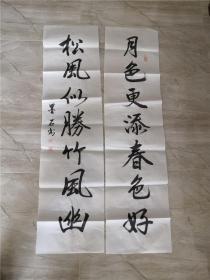 月色更添春色好
松風似勝竹風幽